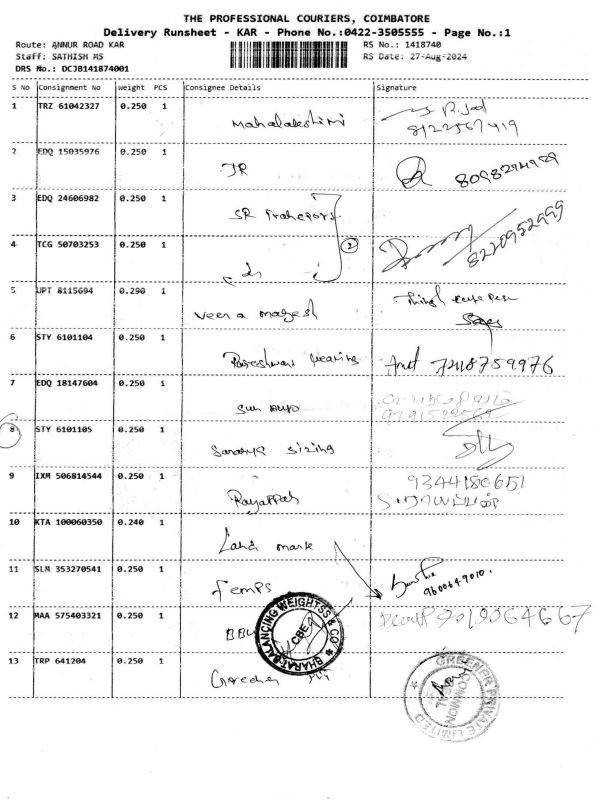 THE PROFESSIONAL COURIERS, COIMBATORE
Delivery Runsheet - KAR - Phone No.:0422-3505555 - Page No.:1
Route: ANNUR ROAD KAR
RS No.: 1418740
Staff: SATHISH MS
RS Date: 27-Aug-2024
DRS No.: DCJB141874001
S No Consignment No Weight PCS Consignee Details Signature
1 TRZ 61042327 0.250 1
8122567419
2 EDQ 15035976 0.250 1 JR
3 EDQ 24606982 0.250 1 SR Transport
2
8220952999
4 TCG 50703253 0.250 1
5 JPT 8115694 0.290 1 veera magesh
6 STY 6101104 0.250 1
7 EDQ 18147604 0.250 1 Sun
8 STY 6101105 0.250 1 sizing
9 IXM 506814544 0.250 1 Rayappah 9344180651
10 KTA 100060350 0.240 1 Land mark
11 SLM 353270541 0.250 1 Temps 9600649010.
12 MAA 575403321 0.250 1
BHARAT BALANCING WEIGHTSS & CO
CBE
13 TRP 641204 0.250 1
GREENER PRIVATE LIMITED
COMMON SEAL